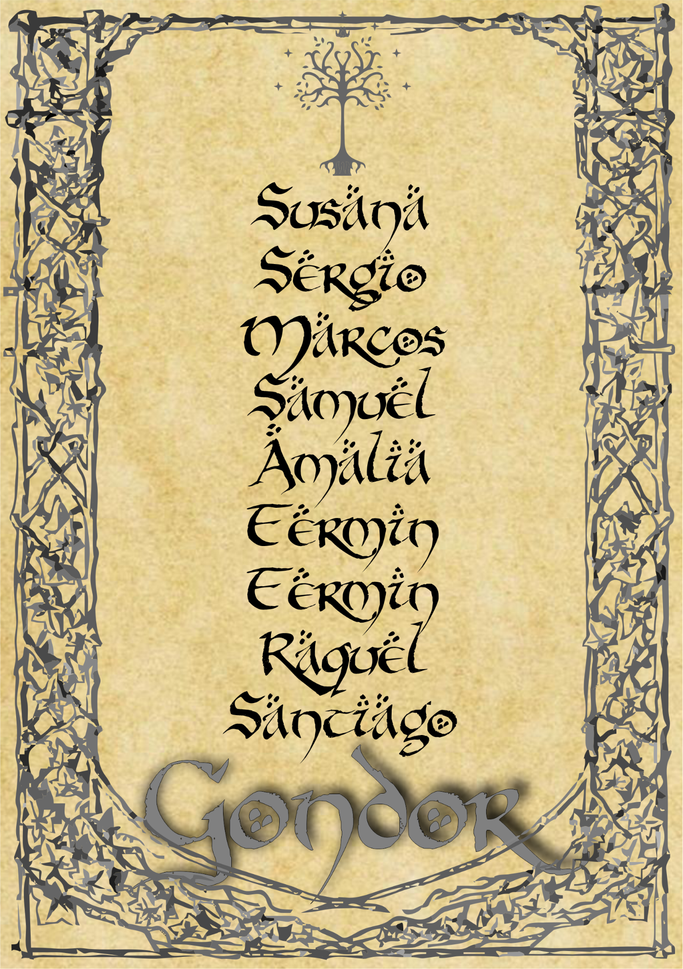 Susana
Sergio
Marcos
Samuel
Amalia
Fermin
Fermin
Raquel
Santiago
Gondor